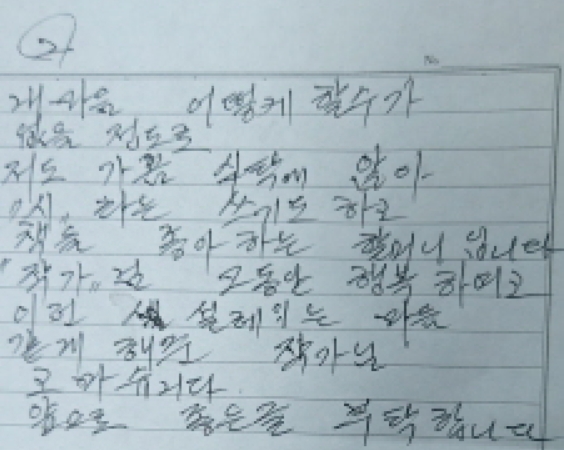 2
No
내 마음 어떻게 할수가
없을 정도로
저도 가끔 식탁에 앉아
"시" 라는 쓰기도 하고
책을 좋아 하는 할머니 입니다
"작가" 님 그동안 행복 하며고
이런 설레이는 마음
같게 해준 작가님
고마슈리다
앞으로 좋은글 부탁합니다